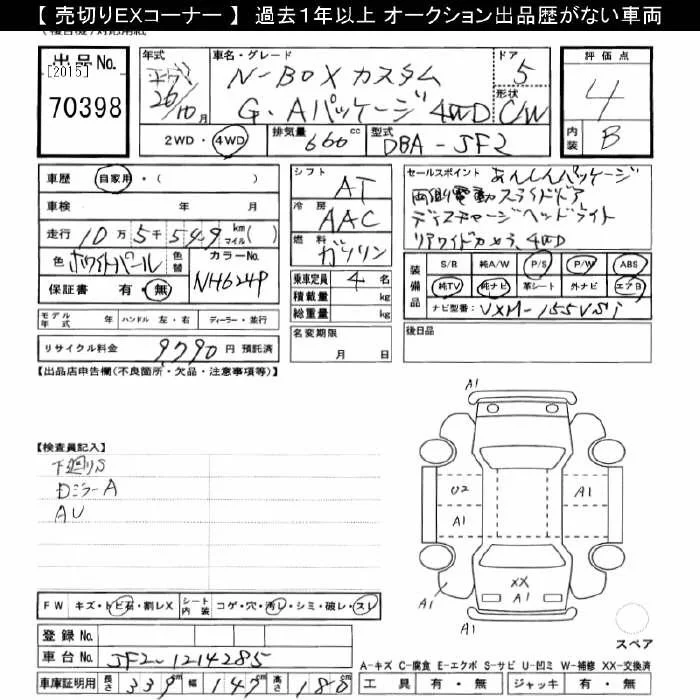 【 売切りEXコーナー 】 過去１年以上 オークション出品歴がない車両
出品No.
[2015]
70398
年式
平成
26/10月
車名・グレード
N-BOX カスタム
G・Aパッケージ 4WD
ドア
5
形状
C/W
評価点
4
内装 B
2WD・4WD
排気量 660 cc
型式 DBA-JF2
車歴 自家用・( )
車検 年 月
走行 10万5千549 km マイル( )
色 ホワイトパール
色替
カラーNo. NH624P
保証書 有・無
シフト AT
冷房 AAC
燃料 ガソリン
乗車定員 4 名
積載量 kg
総重量 kg
セールスポイント あんしんパッケージ
両側電動スライドドア
ディスチャージヘッドライト
リアワイドカメラ、4WD
装備品
S/R 純A/W P/S P/W ABS
純TV 純ナビ 革シート 外ナビ エアB
ナビ型番: VXM-155VSi
モデル年式 年 ハンドル 左・右 ディーラー・並行
リサイクル料金 9,790 円 預託済
名変期限
月 日
後日品
【出品店申告欄(不良箇所・欠品・注意事項等)】
【検査員記入】
下廻りS
DミラーA
AU
A1
U2
A1
A1
XX
A1
A1
A1
スペア
FW キズ・トビ石・割レX
シート内装 コゲ・穴・汚レ・シミ・破レ・スレ
登録No.
車台No. JF2-1214285
車庫証明用 長さ 339 cm 幅 147 cm 高さ 180 cm
A-キズ C-腐食 E-エクボ S-サビ U-凹ミ W-補修 XX-交換済
工具 有・無 ジャッキ 有・無